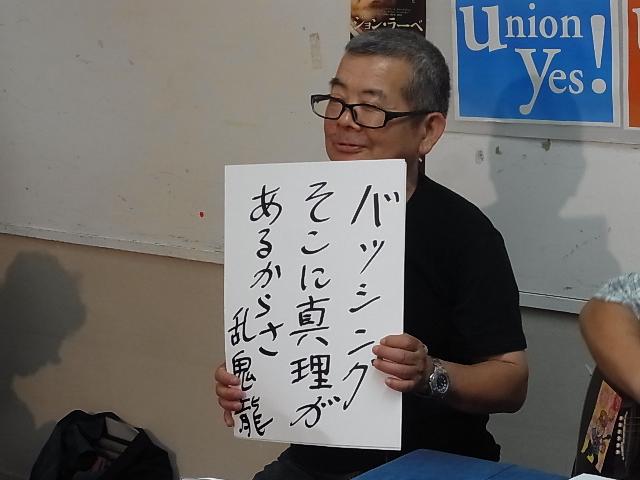 バッシング
そこに真理が
あるからさ
乱鬼龍
ション・ラーベ
union
Yes!